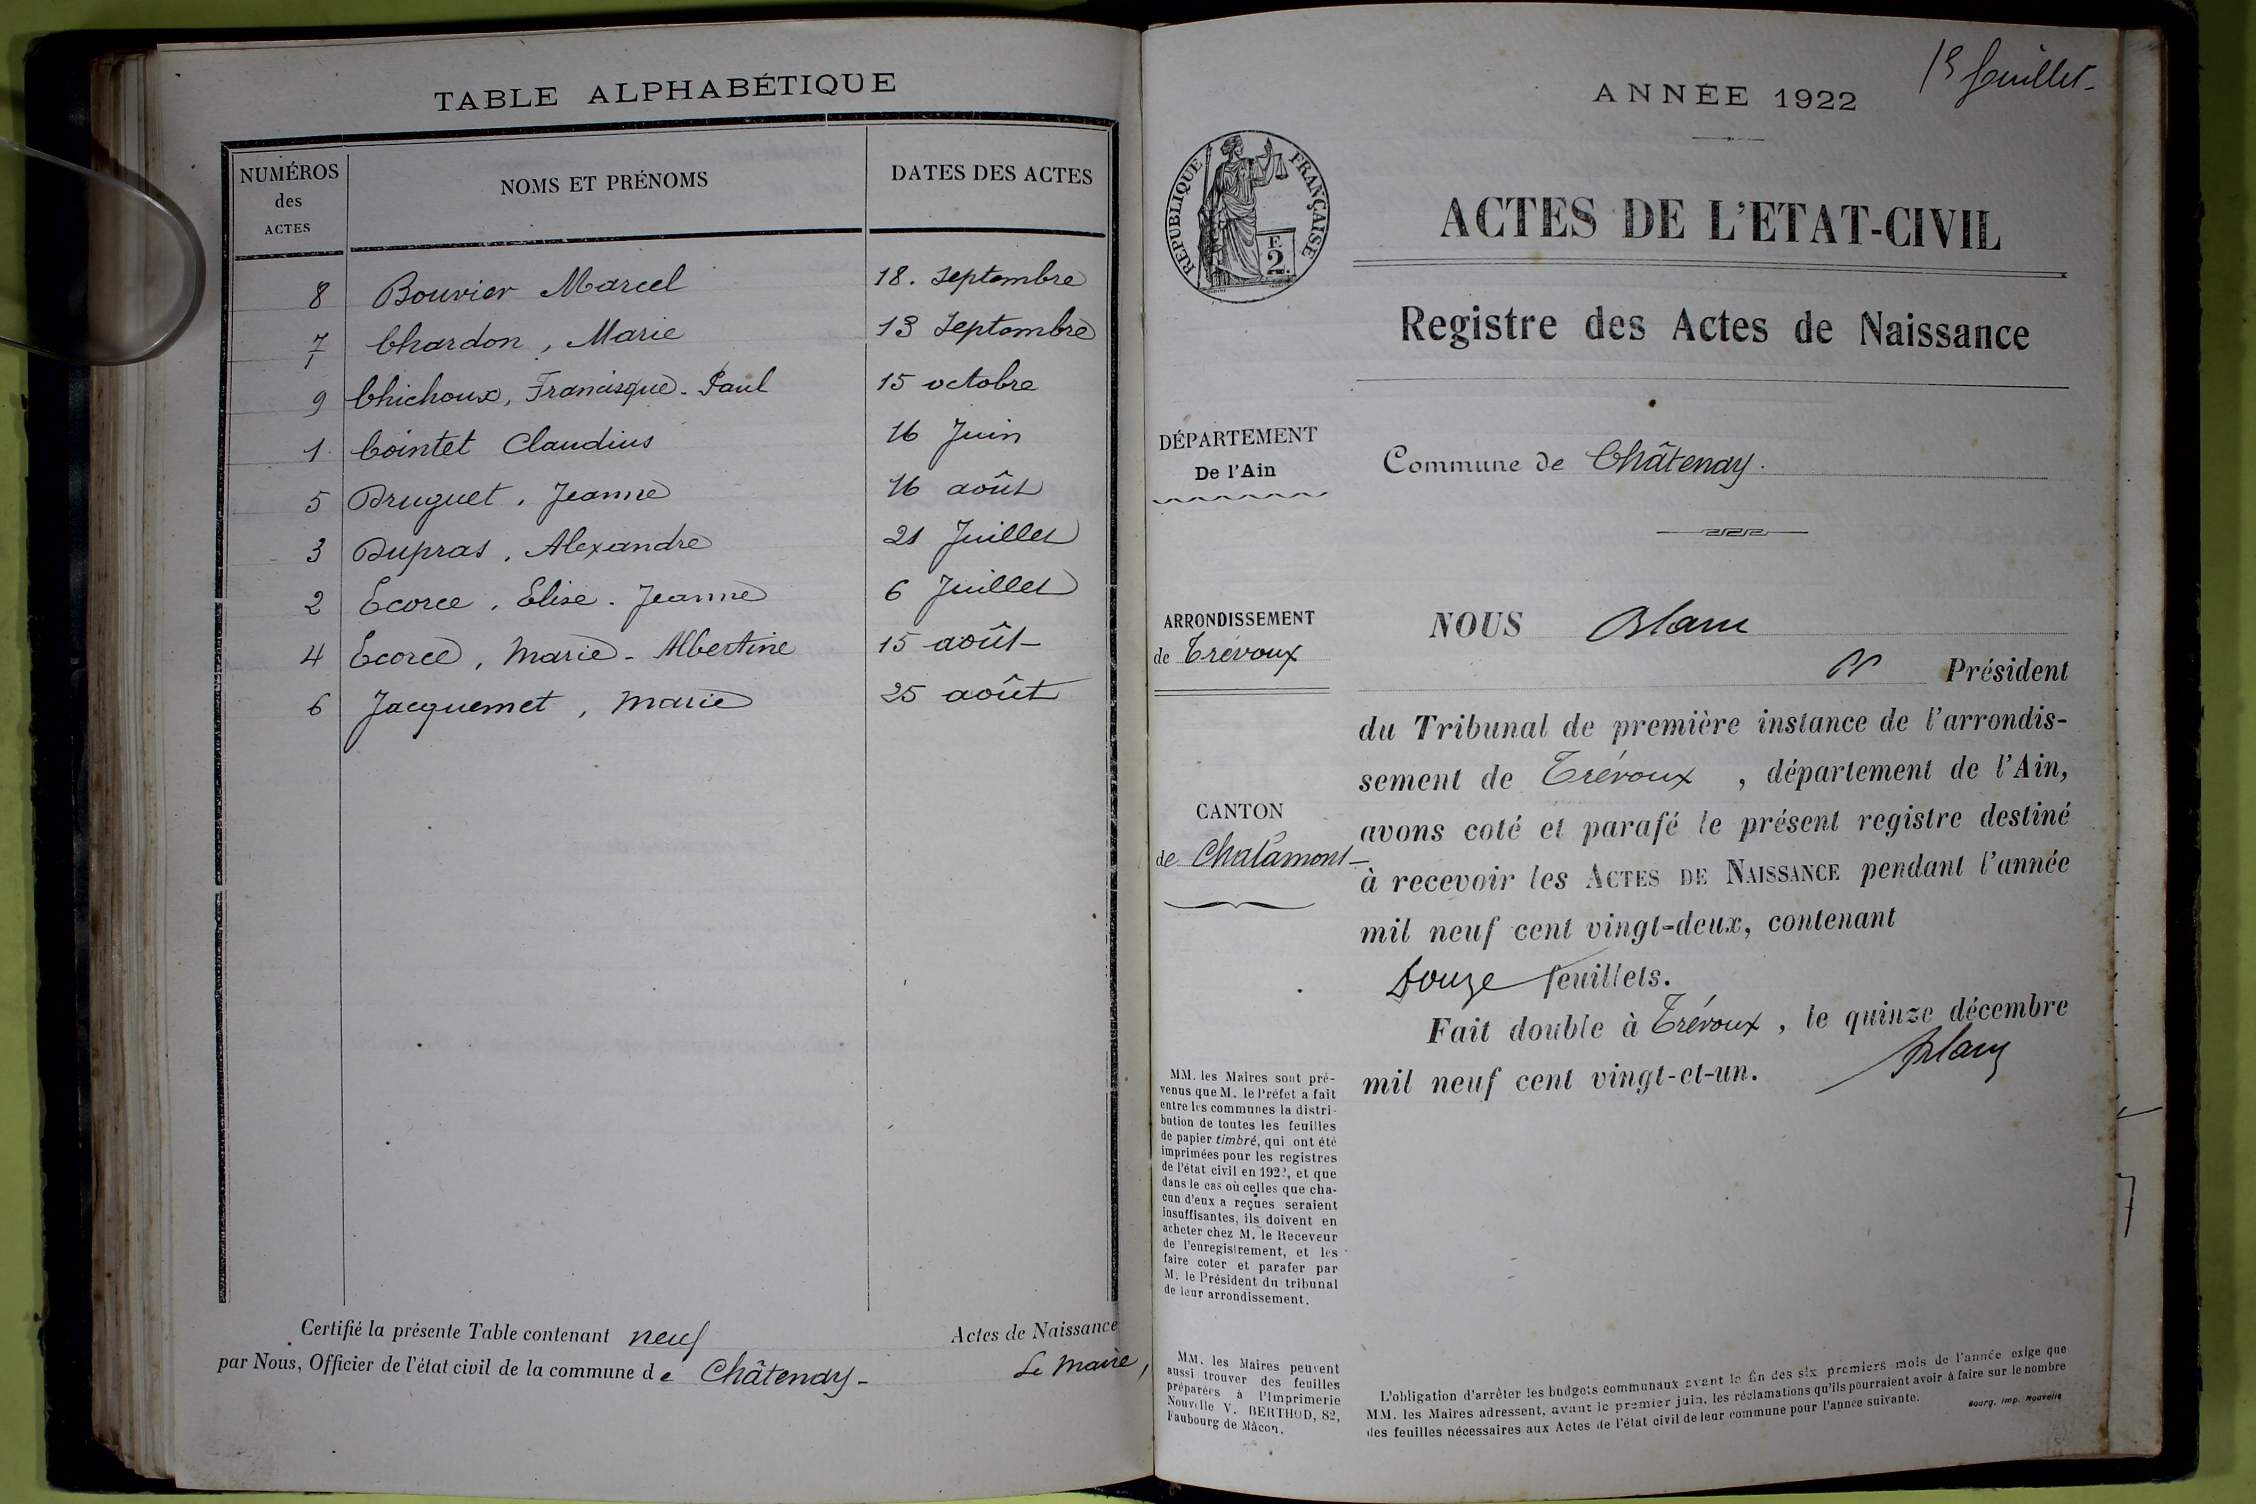 TABLE ALPHABÉTIQUE
NUMÉROS des ACTES NOMS ET PRÉNOMS DATES DES ACTES
8 Bouvier Marcel 18. Septembre
7 Chardon, Marie 13 Septembre
9 Chichoux, Francisque-Paul 15 octobre
1 Cointet Claudius 16 Juin
5 Druguet, Jeanne 16 août
3 Dupras, Alexandre 21 Juillet
2 Ecorce, Elise-Jeanne 6 Juillet
4 Ecorce, Marie-Albertine 15 août
6 Jacquemet, Marie 25 août
Certifié la présente Table contenant neuf Actes de Naissance
par Nous, Officier de l'état civil de la commune de Châtenay - Le Maire,
1e feuillet
ANNÉE 1922
RÉPUBLIQUE FRANÇAISE
F.
2
ACTES DE L'ETAT-CIVIL
Registre des Actes de Naissance
DÉPARTEMENT
De l'Ain
Commune de Châtenay.
ARRONDISSEMENT
de Trévoux
CANTON
de Chalamont
NOUS Blanc
Président
du Tribunal de première instance de l'arrondis-
sement de Trévoux, département de l'Ain,
avons coté et parafé le présent registre destiné
à recevoir les ACTES DE NAISSANCE pendant l'année
mil neuf cent vingt-deux, contenant
Douze feuillets.
Fait double à Trévoux, le quinze décembre
mil neuf cent vingt-et-un. Blanc
MM. les Maires sont pré-
venus que M. le Préfet a fait
entre les communes la distri-
bution de toutes les feuilles
de papier timbré, qui ont été
imprimées pour les registres
de l'état civil en 1922, et que
dans le cas où celles que cha-
cun d'eux a reçues seraient
insuffisantes, ils doivent en
acheter chez M. le Receveur
de l'enregistrement, et les
faire coter et parafer par
M. le Président du tribunal
de leur arrondissement.
MM. les Maires peuvent
aussi trouver des feuilles
préparées à l'Imprimerie
Nouvelle V. BERTHOD, 82,
Faubourg de Mâcon.
L'obligation d'arrêter les budgets communaux avant la fin des six premiers mois de l'année exige que
MM. les Maires adressent, avant le premier juin, les réclamations qu'ils pourraient avoir à faire sur le nombre
des feuilles nécessaires aux Actes de l'état civil de leur commune pour l'année suivante.
Bourg, Imp. Nouvelle